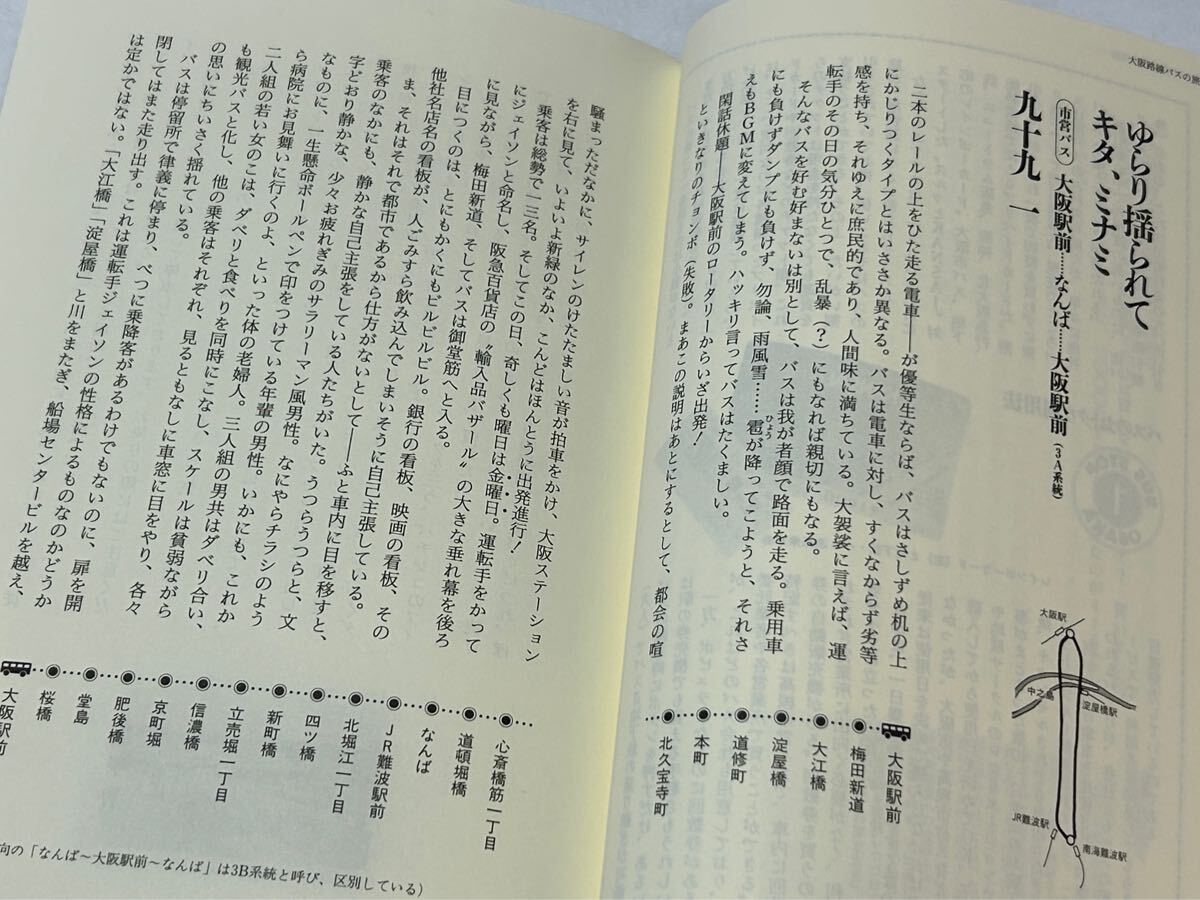 大阪路線バスの旅
ゆらり揺られて
キタ、ミナミ
市営バス 大阪駅前……なんば……大阪駅前(3A系統)
九十九 一
二本のレールの上をひた走る電車――が優等生ならば、バスはさしずめ机の上
にかじりつくタイプとはいささか異なる。バスは電車に対し、すくなからず劣等
感を持ち、それゆえに庶民的であり、人間味に満ちている。大袈裟に言えば、運
転手のその日の気分ひとつで、乱暴(?)にもなれば親切にもなる。
そんなバスを好む好まないは別として、バスは我が者顔で路面を走る。乗用車
にも負けずダンプにも負けず、勿論、雨風雪……雹が降ってこようと、それさ
ひょう
えもBGMに変えてしまう。ハッキリ言ってバスはたくましい。
閑話休題――大阪駅前のロータリーからいざ出発!
といきなりのチョンボ(失敗)。まあこの説明はあとにするとして、都会の喧
大阪駅
中之島
淀屋橋駅
JR難波駅
南海難波駅
大阪駅前
梅田新道
大江橋
淀屋橋
道修町
本町
北久宝寺町
騒まっただなかに、サイレンのけたたましい音が拍車をかけ、大阪ステーション
を右に見て、いよいよ新緑のなか、こんどはほんとうに出発進行!
乗客は総勢で一三名。そしてこの日、奇しくも曜日は金曜日。運転手をかって
にジェイソンと命名し、阪急百貨店の〝輸入品バザール〟の大きな垂れ幕を後ろ
に見ながら、梅田新道、そしてバスは御堂筋へと入る。
目につくのは、とにもかくにもビルビルビル。銀行の看板、映画の看板、その
他社名店名の看板が、人ごみすら飲み込んでしまいそうに自己主張している。
ま、それはそれで都市であるから仕方がないとして――ふと車内に目を移すと、
乗客のなかにも、静かな自己主張をしている人たちがいた。うつらうつらと、文
字どおり静かな、少々お疲れぎみのサラリーマン風男性。なにやらチラシのよう
なものに、一生懸命ボールペンで印をつけている年輩の男性。いかにも、これか
ら病院にお見舞いに行くのよ、といった体の老婦人。三人組の男共はダベリ合い、
二人組の若い女のこは、ダベリと食べりを同時にこなし、スケールは貧弱ながら
も観光バスと化し、他の乗客はそれぞれ、見るともなしに車窓に目をやり、各々
の思いにちいさく揺れている。
バスは停留所で律義に停まり、べつに乗降客があるわけでもないのに、扉を開
閉してはまた走り出す。これは運転手ジェイソンの性格によるものなのかどうか
は定かではない。「大江橋」「淀屋橋」と川をまたぎ、船場センタービルを越え、
心斎橋筋一丁目
道頓堀橋
なんば
JR難波駅前
北堀江一丁目
四ツ橋
新町橋
立売堀一丁目
信濃橋
京町堀
肥後橋
堂島
桜橋
大阪駅前
向の「なんば〜大阪駅前〜なんば」は3B系統と呼び、区別している)